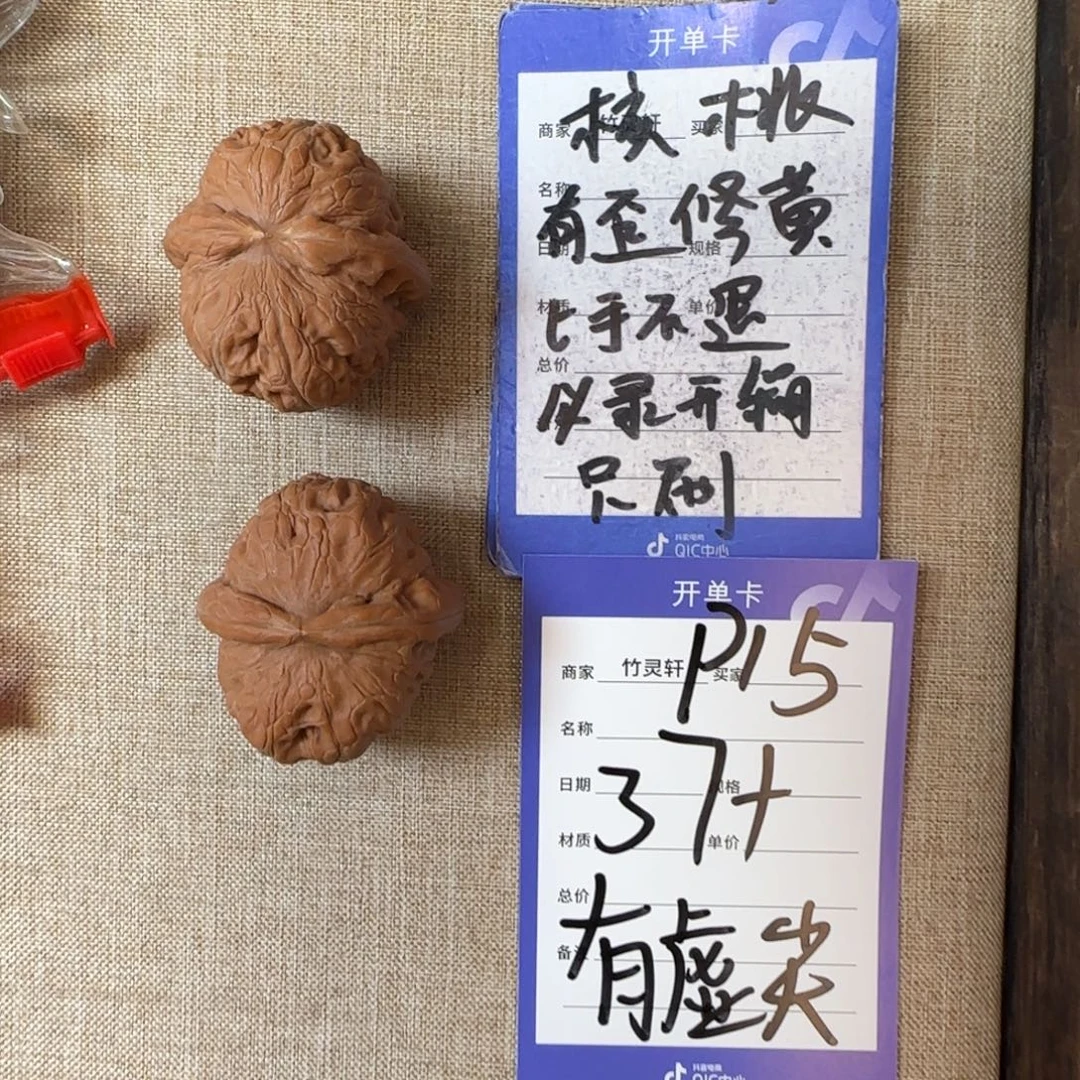 开单卡
核桃
商家 竹灵轩 买家
有歪修黄
名称
日期 规格
上手不退
材质 单价
总价
必录开箱
只刷
抖音电商
QIC中心
开单卡
P15
商家 竹灵轩 买家
名称
37+
日期 规格
材质 单价
总价
有虚尖
备注
抖音电商
QIC中心